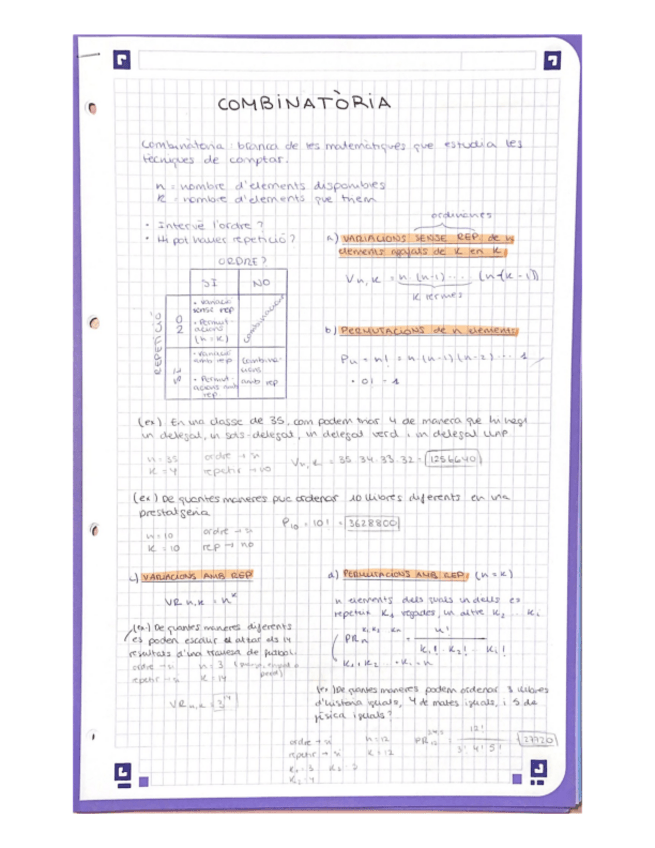 COMBINATÒRIA
Combinatòria: branca de les matemàtiques que estudia les
tècniques de comptar.
n = nombre d'elements disponibles
K = nombre d'elements que triem
• Intervé l'ordre?
• Hi pot haver repetició?
ORDRE?
SI NO
REPETICIÓ
NO
• Variació
sense rep
• Permut-
acions
(n=k)
Combinacions
SI
• Variació
amb rep
• Permut-
acions amb
rep
Combina-
cions
amb rep
ordinàries
a) VARIACIONS SENSE REP. de n
elements agafats de K en K
Vn,k = n·(n-1)· ... (n-(k-1))
K termes
b) PERMUTACIONS de n elements
Pn = n! = n·(n-1)(n-2)· ... 1
• 0! = 1
(ex) En una classe de 35, com podem triar 4 de manera que hi hagi
un delegat, un sots-delegat, un delegat verd i un delegat
n = 35 ordre → si
K = 4 repetir → no
Vn,k = 35·34·33·32 = 1256640
(ex) De quantes maneres puc ordenar 10 llibres diferents en una
prestatgeria
n = 10 ordre → si
K = 10 rep → no
P10 = 10! = 3628800
c) VARIACIONS AMB REP
VRn,k = n^k
(ex) De quantes maneres diferents
es poden escriure els
resultats d'una travessa de futbol.
ordre → si n = 3
repetir → si K = 14
VRn,k = 3^14
d) PERMUTACIONS AMB REP. (n=k)
n elements dels quals un d'ells es
repeteix K1 vegades, un altre K2 ... Ki
PRn = n! / K1!·K2!· Ki!
K1+K2 ... +Ki = n
(ex) De quantes maneres podem ordenar 3 llibres
d'història iguals, 4 de mates iguals, i 5 de
física iguals?
ordre → si n = 12
repetir → si K = 12
K1 = 3
K2 = 4
PR12 = 12! / 3! 4! 5! = 27720